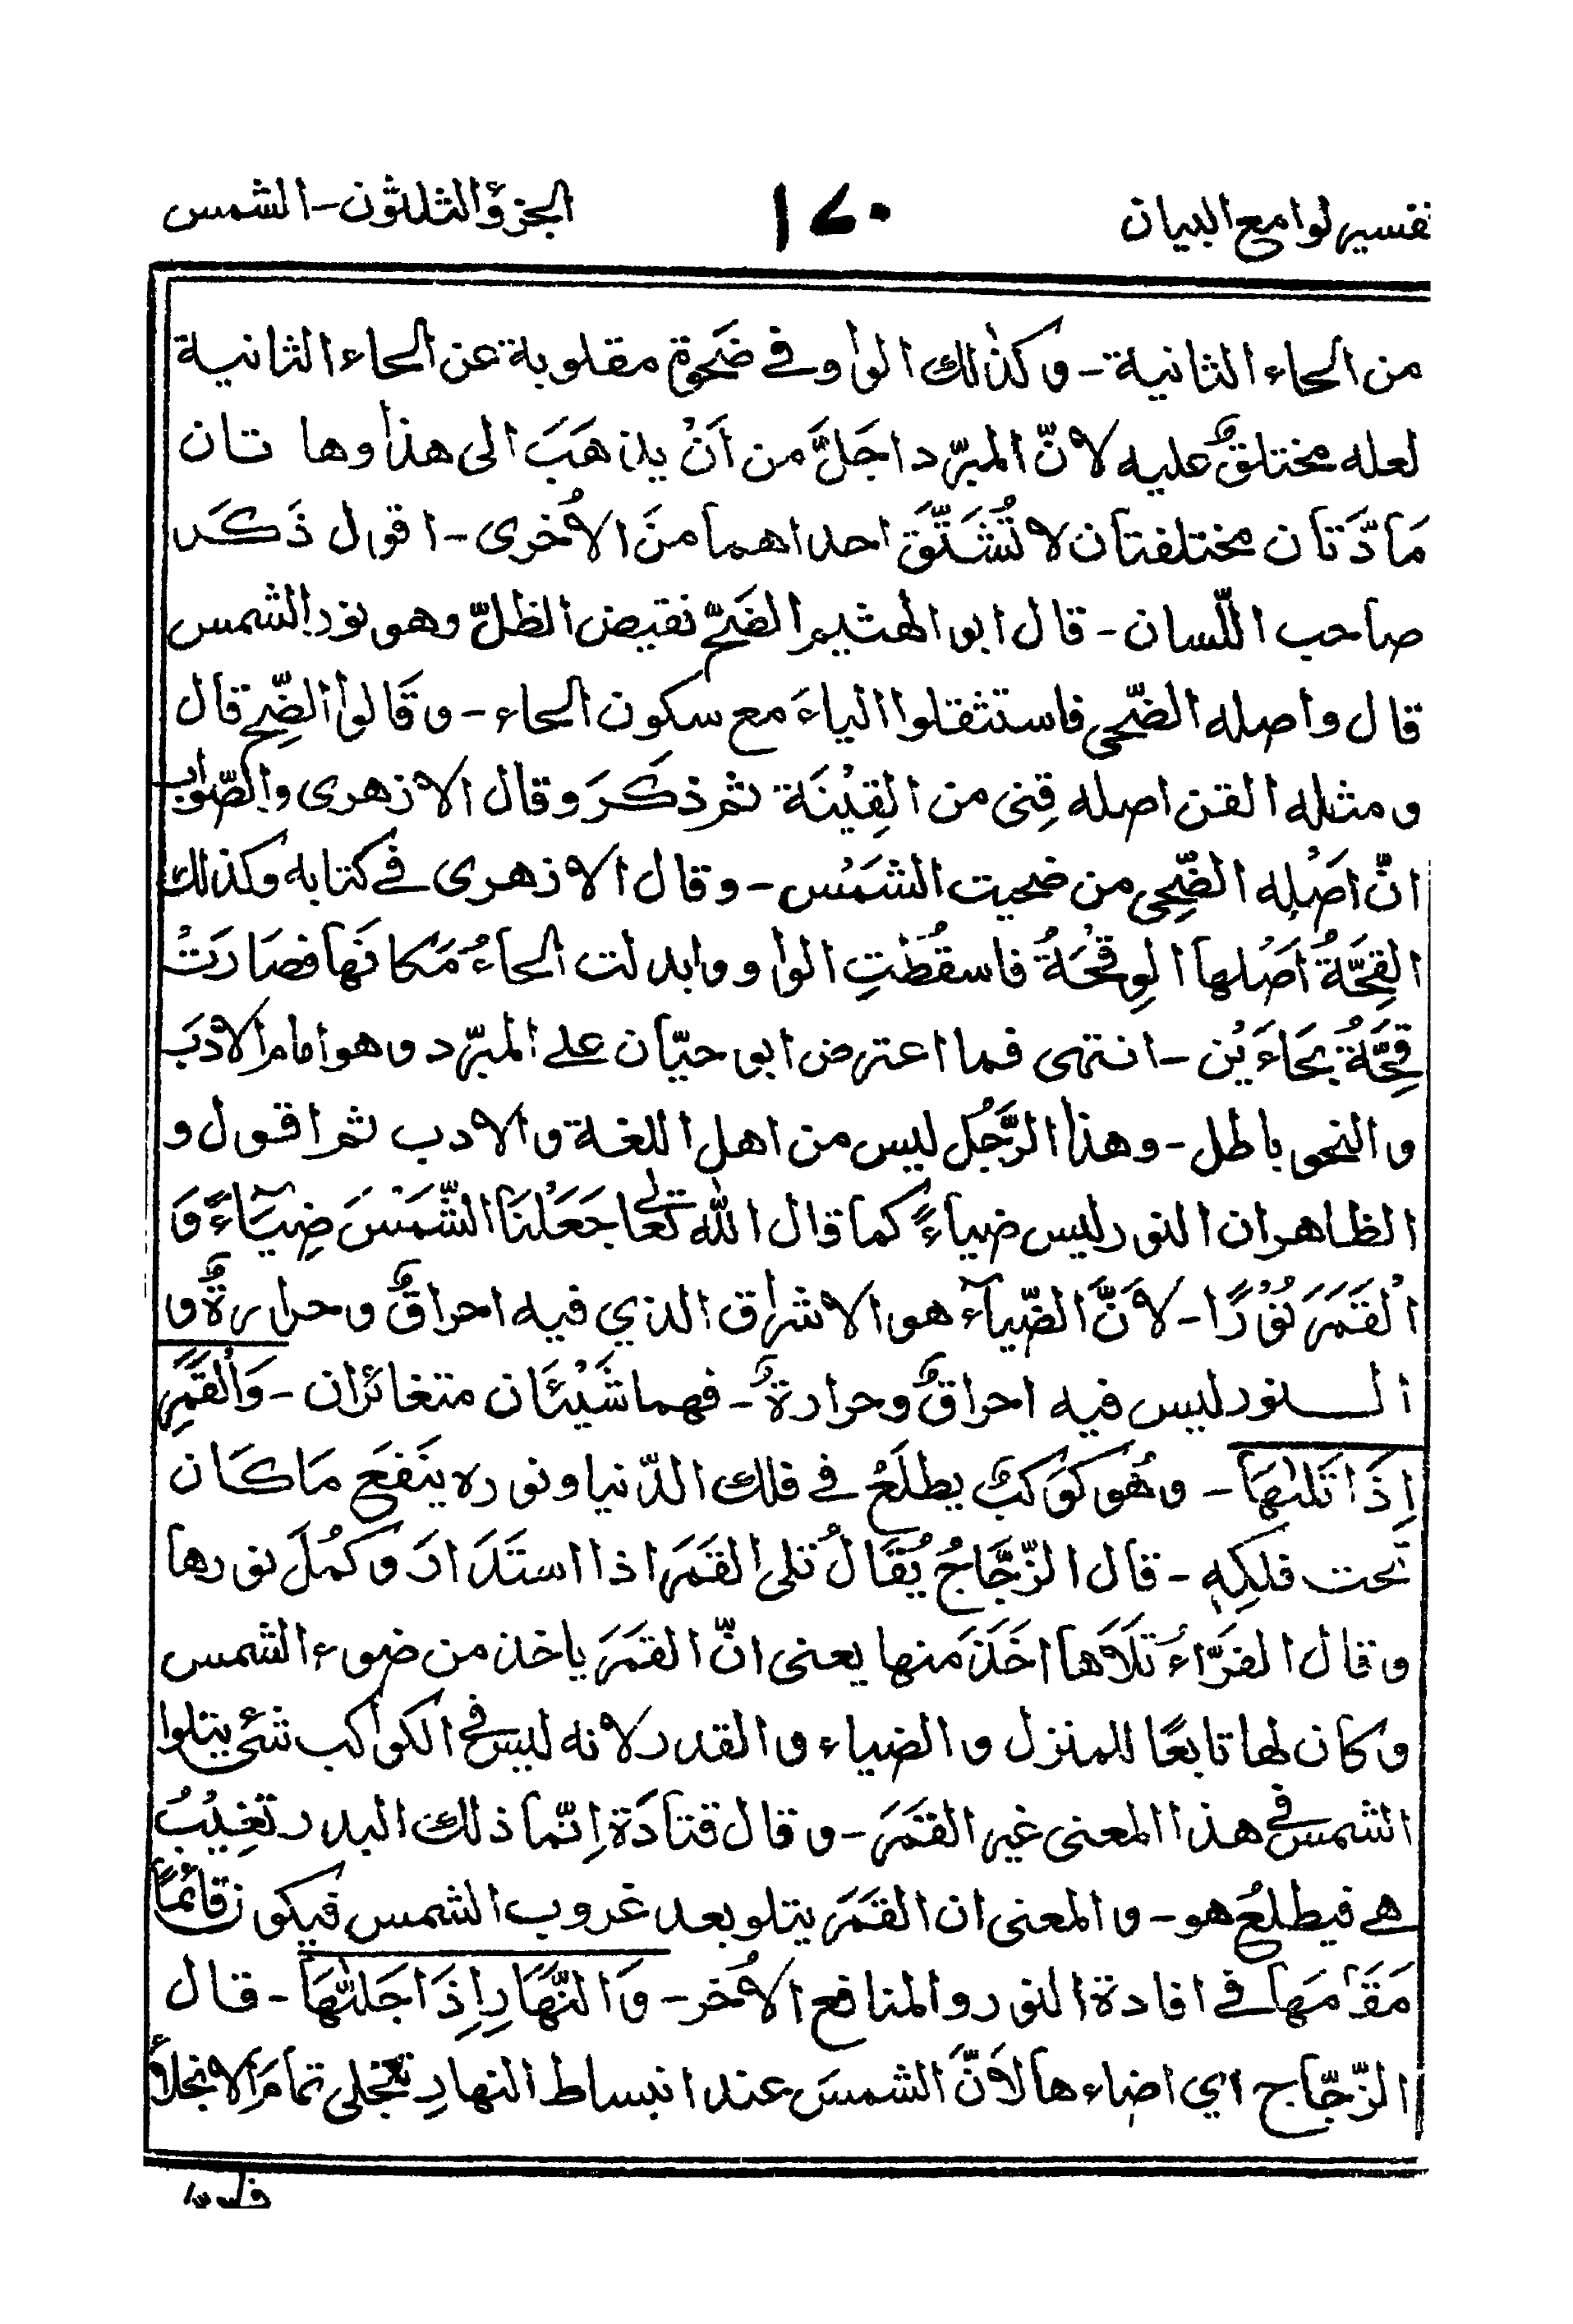 تفسير لوامع البيان ۱۷۰ الجزؤ الثلثون - الشمس
من الحاء الثانية - وكذلك الواو في ضَحْوة مقلوبة عن الحاء الثانية
لعله مختلقٌ عليه لانّ المبرّد اجَلَّ من اَنْ يذهَبَ الى هذا وها تان
مَادَّتان مختلفتان لا تُشَتَّقَ احداهما منَ الاُخرى - اقول ذَكَر
صاحب اللّسان - قال ابو الهثيم الضَحّ نقيض الظلّ وهو نور الشمس
قال واصله الضّحى فاستثقلوا الياءَ مع سكون الحاء - وقَالوا الضِّح قال
ومثله القن اصله قِنى من القِيْنَة ثم ذكَرَ وقال الازهرى والصّواب
انّ اَصْله الضِّحى من ضحيت الشمَسْ - وقال الازهرى في كتابه وكذلك
القِحَّةُ اَصْلها الوِقحَةُ فاسقُطَتِ الواو وابدلت الحاءُ مَكانَها فصَارَتْ
قِحَّةُ بحَاءَيْن - انتهى فما اعترض ابو حيّان على المبرّد وهو امام الادَبَ
والنحو باطل - وهذا الرَّجُل ليس من اهل اللغة والادب ثم اقول و
الظاهر ان النور ليس ضياءً كما قال الله تعالى جَعَلْنَا الشَّمْسَ ضِيَآءً وَ
الْقَمَرَ نُوْرًا - لاَنَّ الضّيآء هو الاشراق الذي فيه احراقٌ وحرارةٌ و
النور ليس فيه احراقٌ وحرارةٌ - فهما شَيْئَان متغائران - وَالْقَمَرِ
اِذَا تَلٰىهَا - وهُو كَوَكبٌ يطلَعُ في فلك الدّنيا ونوره ينَفَعَ مَا كَان
تَحت فلكِهٖ - قال الزّجَّاجُ يُقَالُ تلى القَمَرَ اذا استَدَارَ وكَمُلَ نورها
وقال الفَرَّاءُ تَلاَها اخَذَ منها يعنى انّ القمَرَ ياخذ من ضوء الشمس
وكان لها تابعًا للمنزل والضياء والقدر لانه ليس في الكواكب شئ يتلوا
الشمس في هذا المعنى غير القمَرَ - وقال قتادَة اِنّما ذلك البدر تغِيْبُ
هي فيطلعُ هو - والمعنى ان القَمَرَ يتلو بعد غروب الشمس فيكون قائمًا
مَقَامَها في افادة النور والمنافع الاُخر - وَالنَّهَارِ اِذَا جَلّٰىهَا - قال
الزّجّاج اي اضاءها لاَنَّ الشمسَ عند انبساط النهارِ تنجلى تمامَ الانجلاَ